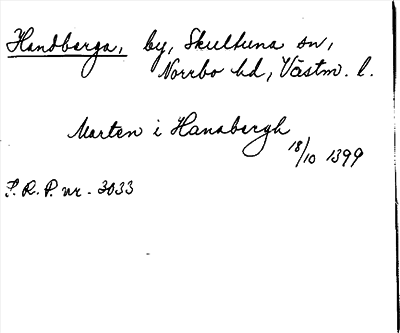 Handberga, by, Skultuna sn,
Norrbo hd, Västm. l.
Marten i Hanabergh
18/10 1399
S. R. P. nr. 3033